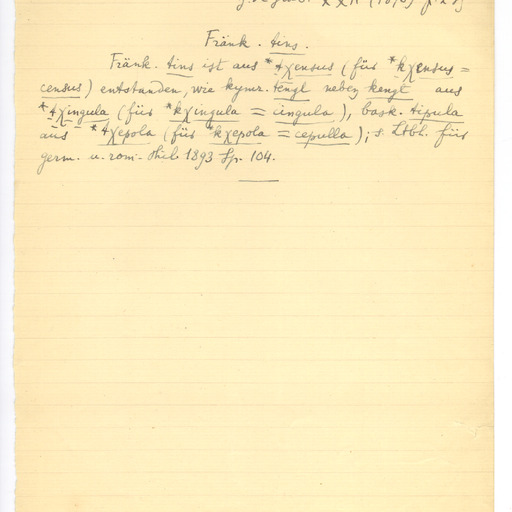 XXII
Fränk. tins.
Fränk. tins ist aus *tχensus (für *kχensus =
census) entstanden, wie kymr. tengl neben kengl aus
*tχingula (für *kχingula = cingula), bask. tipula
aus *tχepola (für *kχepola = cepulla); s. Ltbl. für
germ. u. rom. Phil. 1893 Sp. 104.